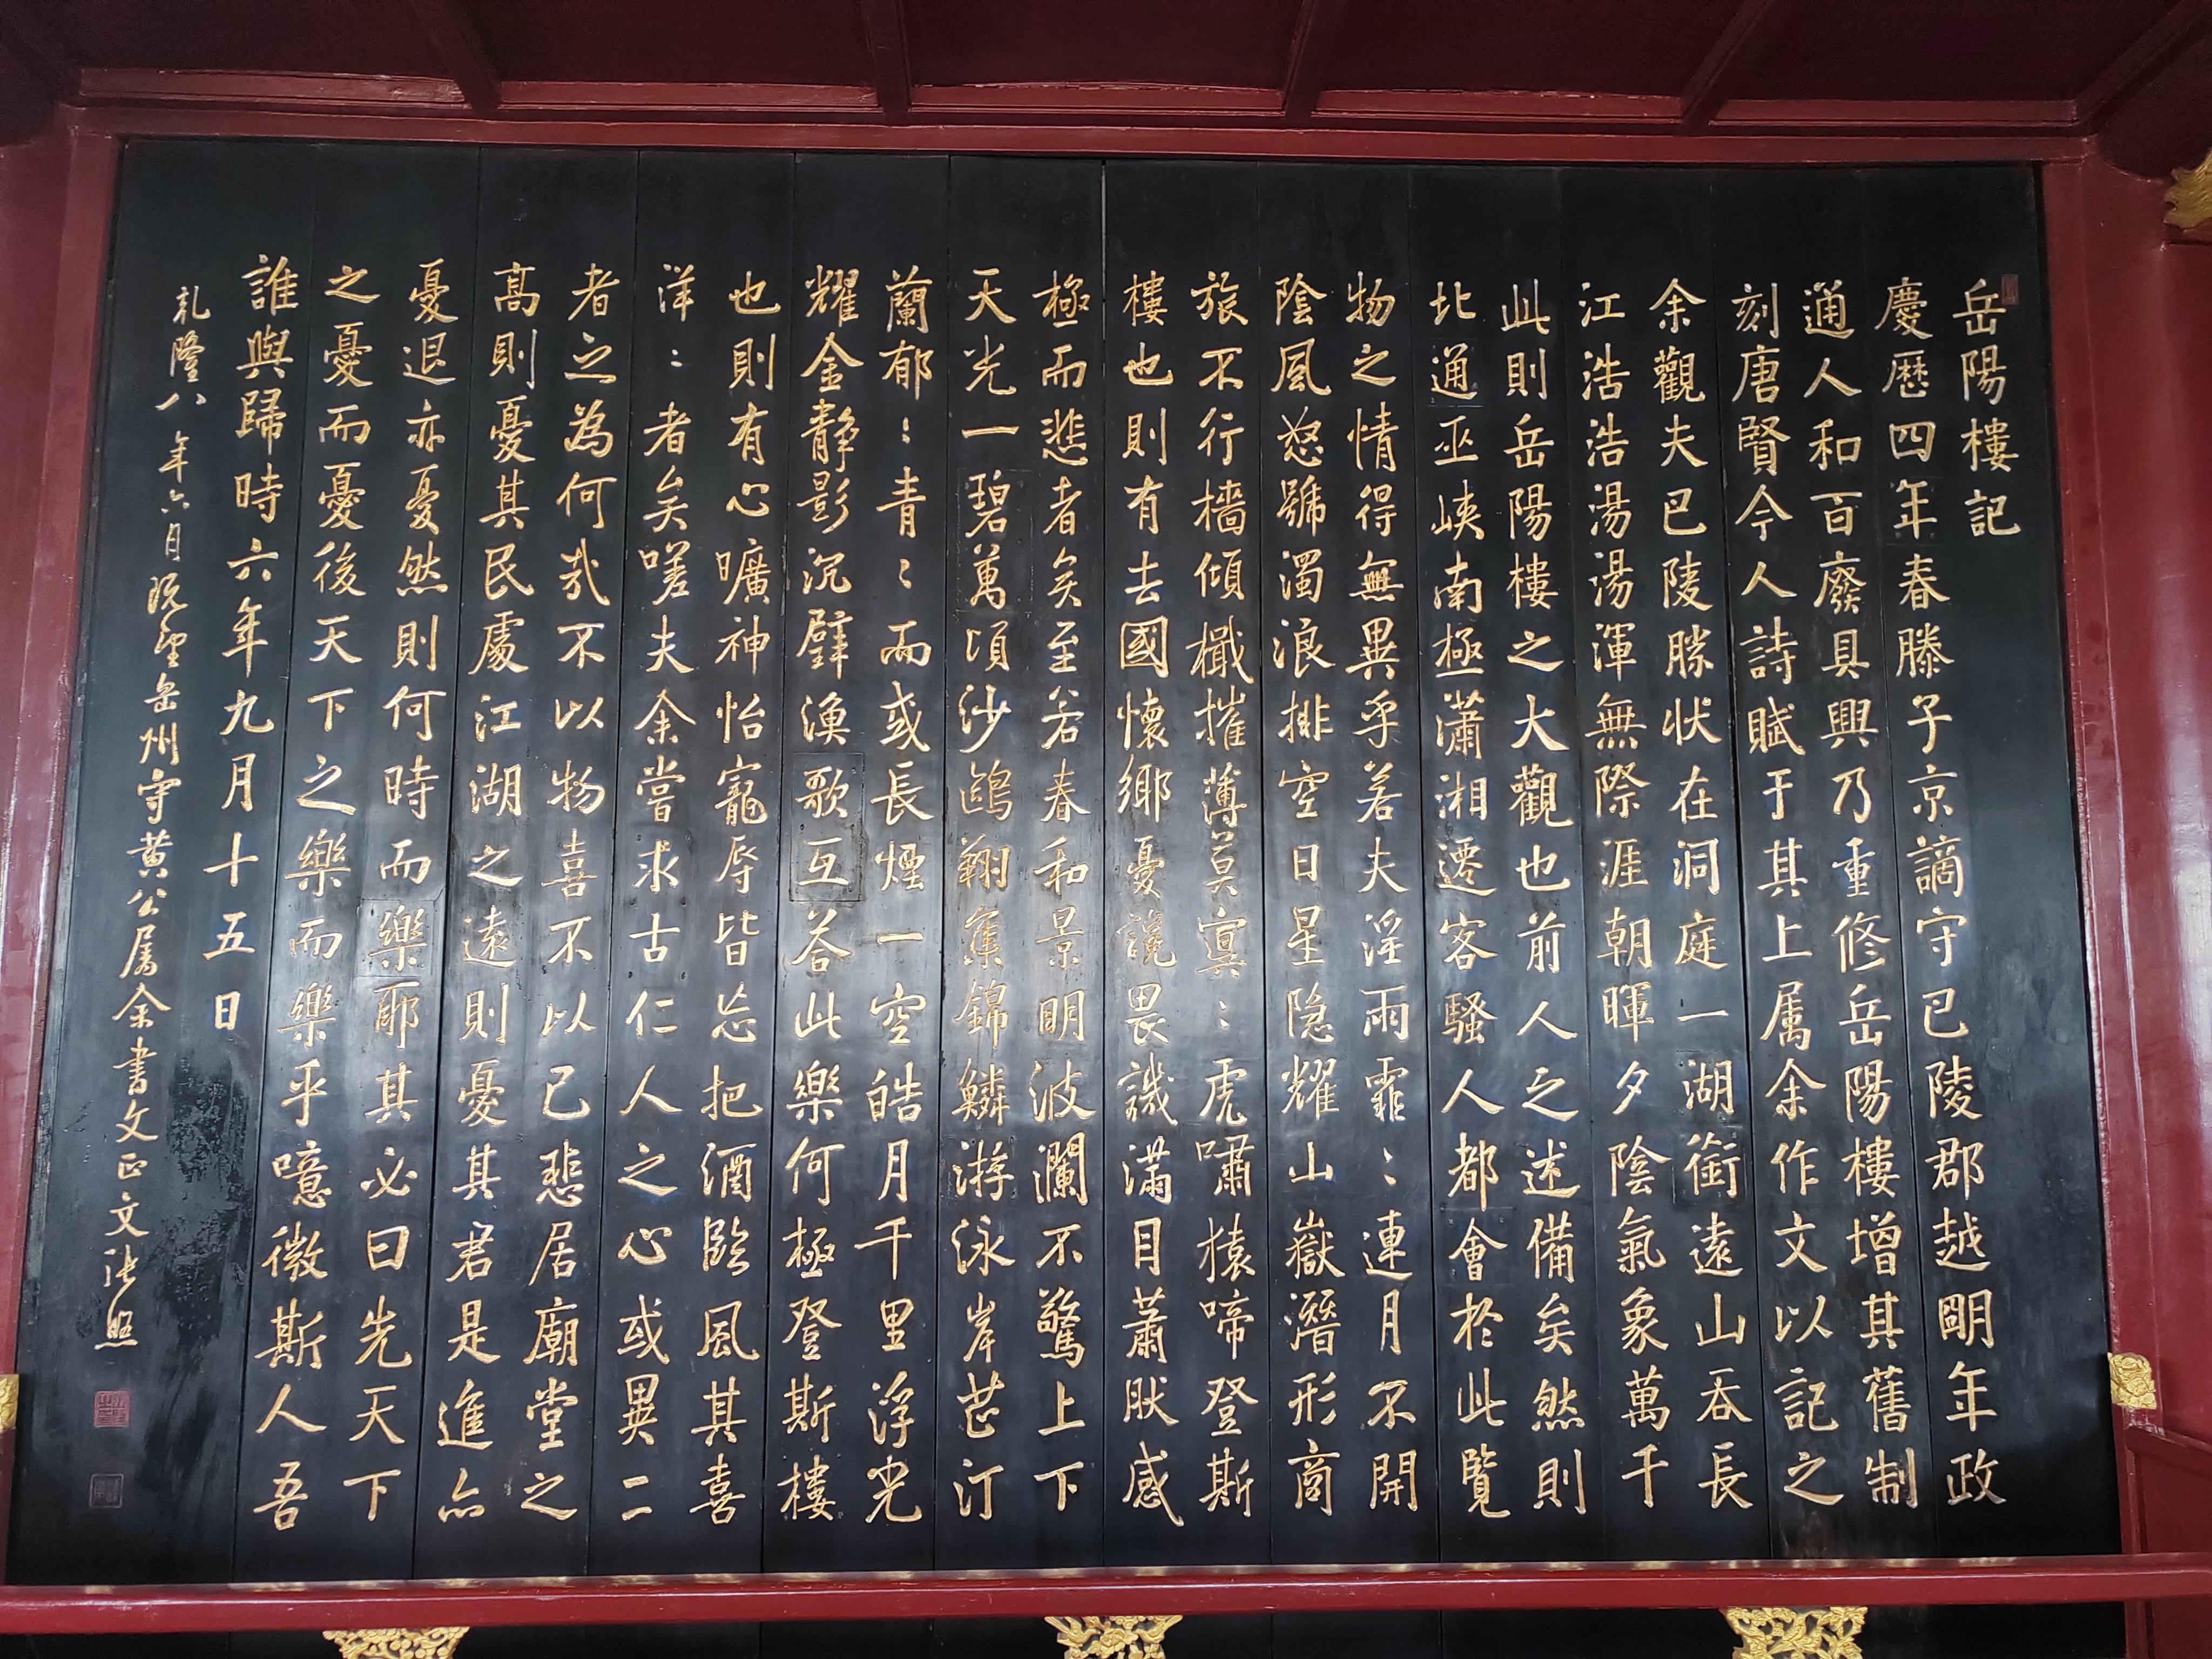 岳陽樓記
慶歷四年春滕子京謫守巴陵郡越明年政
通人和百廢具興乃重修岳陽樓增其舊制
刻唐賢今人詩賦于其上属余作文以記之
余觀夫巴陵勝状在洞庭一湖銜遠山吞長
江浩浩湯湯渾無際涯朝暉夕陰氣象萬千
此則岳陽樓之大觀也前人之述備矣然則
北通巫峽南極瀟湘遷客騷人都會於此覽
物之情得無異乎若夫淫雨霏〻連月不開
陰風怒號濁浪排空日星隱耀山嶽潛形商
旅不行檣傾檝摧薄莫冥〻虎嘯猿啼登斯
樓也則有去國懷鄉憂讒畏譏滿目蕭然感
極而悲者矣至若春和景明波瀾不驚上下
天光一碧萬頃沙鷗翔集錦鱗游泳岸芷汀
蘭郁〻青〻而或長煙一空皓月千里浮光
耀金靜影沉璧漁歌互答此樂何極登斯樓
也則有心曠神怡寵辱皆忘把酒臨風其喜
洋〻者矣嗟夫余嘗求古仁人之心或異二
者之為何哉不以物喜不以己悲居廟堂之
高則憂其民處江湖之遠則憂其君是進亦
憂退亦憂然則何時而樂耶其必曰先天下
之憂而憂後天下之樂而樂乎噫微斯人吾
誰與歸時六年九月十五日
乹隆八年六月岳州守黄公属余書文正文張照